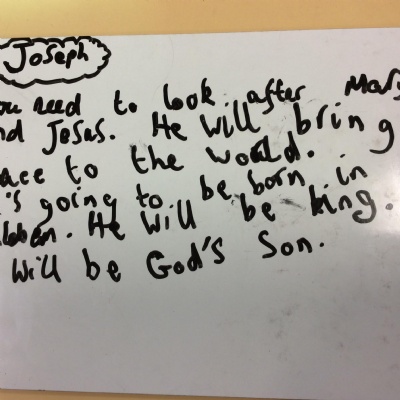 Joseph
ou need to look after Mary
nd Jesus. He will bring
ace to the world.
's going to be born in
He will be king.
will be God's Son.